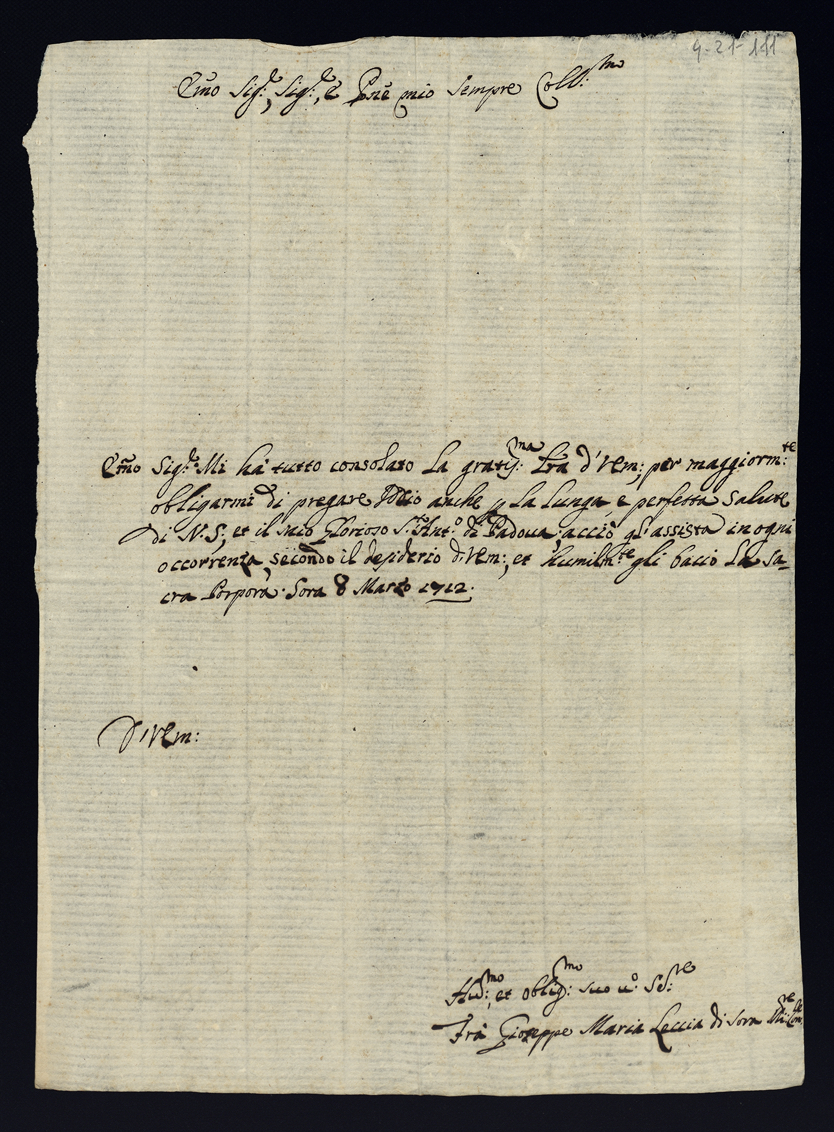 9-21-111
Em̃o Sig.re, Sig.re, e Pñe mio sempre Coll:mo
Em̃o Sig.re Mi hà tutto consolato La gratis:ma Lr̃a d'Vem; per maggiorm:te
obligarmi di pregare Iddio anche p La Lunga, e perfetta salute
di N. S; et il mio Glorioso S. Ant.o di Padova, acciò gl'assista in ogni
occorrenza, secondo il desiderio d'Vem:, et humilm:te gli bacio La Sa-
cra Porpora. Sora 8 Marzo 1712.
D'Vem:
Hu:mo, et oblig:mo suo u.o Se:re
Frà Gioseppe Maria Leccia di Sora